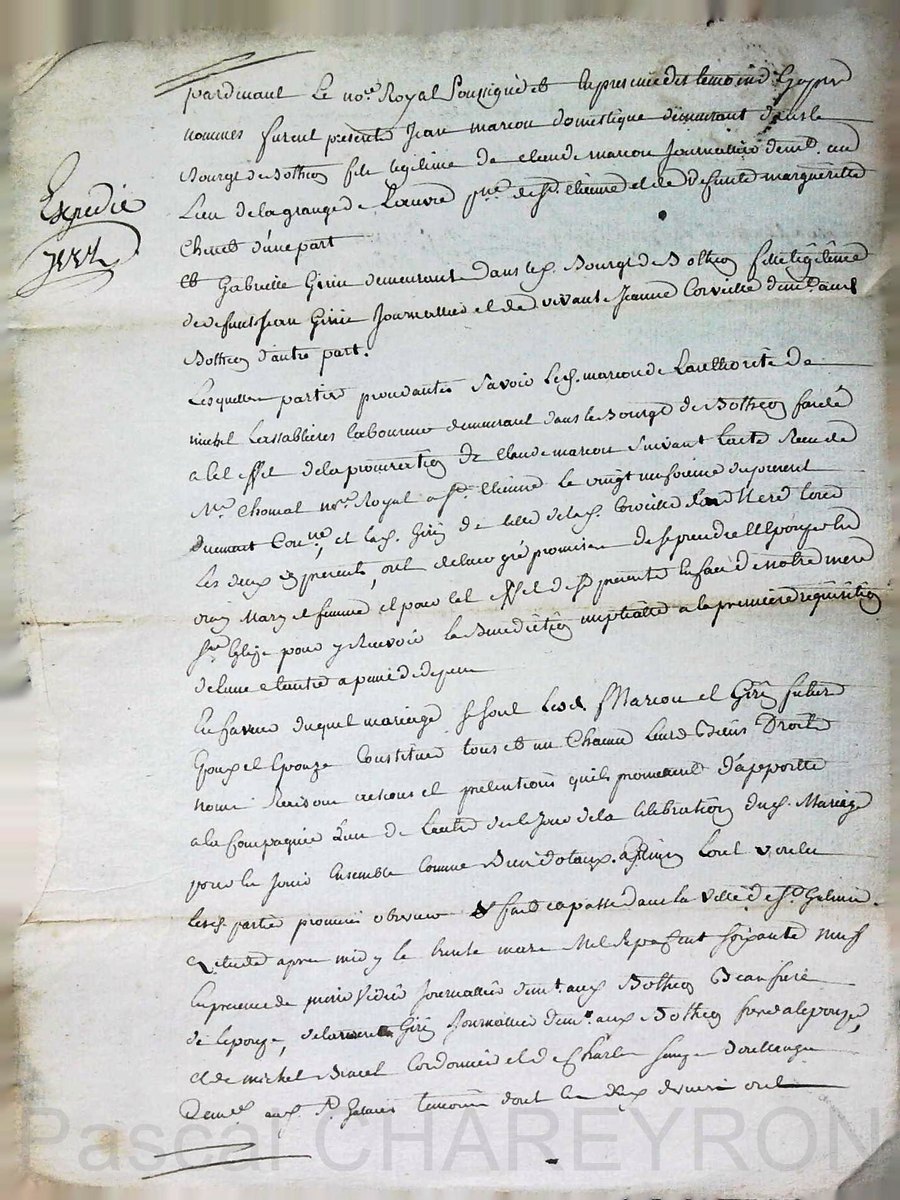 pardevant Le no.re Royal Soussigné et En presence des temoins
nommes furent présents Jean marcou domestique demeurant dans le
Bourg de Botheon fils legitime de claude marcou Journallier dem.t au
Lieu de la grange de Loeuvre p.sse de S.t Etienne et de Defunte margueritte
d'une part
Expedié
et Gabrielle Girin demeurant dans led. Bourg de Botheon fille légitime
de defunt Jean Girin Journallier et de vivante Jeanne Corveille dem.t aud
Botheon d'autre part.
Lesquelles parties procedantes savoir led. marcou de Lauthorité de
michel Lassablieres laboureur demeurant dans le Bourg de Botheon fondé
a cet effet de la procuration de claude marcou suivant Lacte Recu de
M.e Chomat no.re Royal a S.t Etienne le vingt du present
et lad. Girin de celle de lad. Corveille sa mere tous
Les deux ici presents, ont de leur gré promis de se prendre et Epouser en
vrais Mary et femme et pour cet effet de se presenter En face de notre mere
S.te Eglise pour y Recevoir la Benediction nuptialle a la premiere requisition
de lune et lautre a peine de depens
En faveur duquel mariage se sont Lesd. Marcou et Girin futurs
Epoux et Epouze Constitués tous et un Chacun Leurs Biens Droits
noms Raisons actions et pretentions quils promettent d'apporter
a la Compagnie Lun de Lautre des le Jour de la Celebration dud. Mariage
pour en Jouir Ensemble comme Biens dotaux. ainsin Lont voulu
lesd. parties promis observer fait et passé dans la ville de S.t Galmier
Etude apres midy le trente mars Mil Sept Cent soixante neuf
En presence de Journallier dem.t aux Botheon Beau frere
de lepouze, de Girin Journallier dem.t aux Botheon frere a lepouze,
et de michel Cordonnier et de Charles
Dem.t aux S.t Galmier temoins dont les deux derniers ont
Pascal CHAREYRON